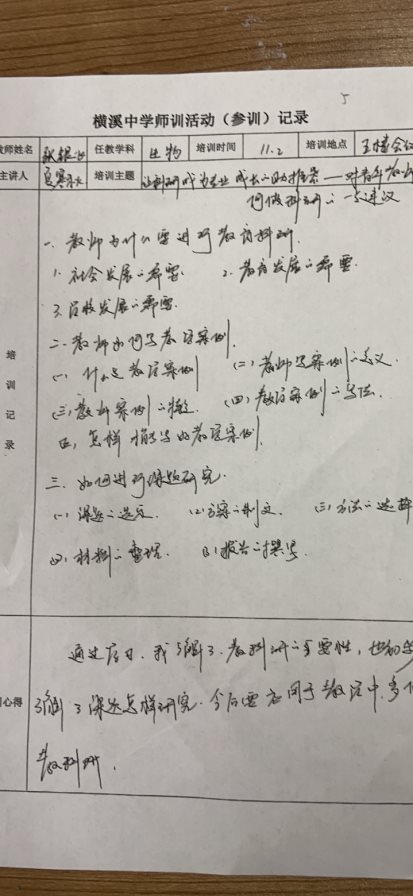 5
横溪中学师训活动（参训）记录
教师姓名 任教学科 生物 培训时间 11.2 培训地点
主讲人 培训主题 让科研成为专业成长的助推器——对青年教师
何做科研的一点建议
一、教师为什么要进行教育科研.
1. 社会发展的需要. 2. 教育发展的需要.
3. 学校发展的需要.
培训记录
二、教师如何写教育案例
(一) 什么是教育案例 (二) 教师写案例的意义
(三) 教师案例的特征. (四) 教育案例的写法.
五、怎样才能写好教育案例.
三、如何进行课题研究.
(一) 课题的选定. (二) 方案的制定. (三) 方法的选择
(四) 材料的整理. (五) 报告的撰写
心得
通过学习，我了解了教科研的重要性，也初步
了解了课题怎样研究. 今后要应用于教学中，多做
教科研.